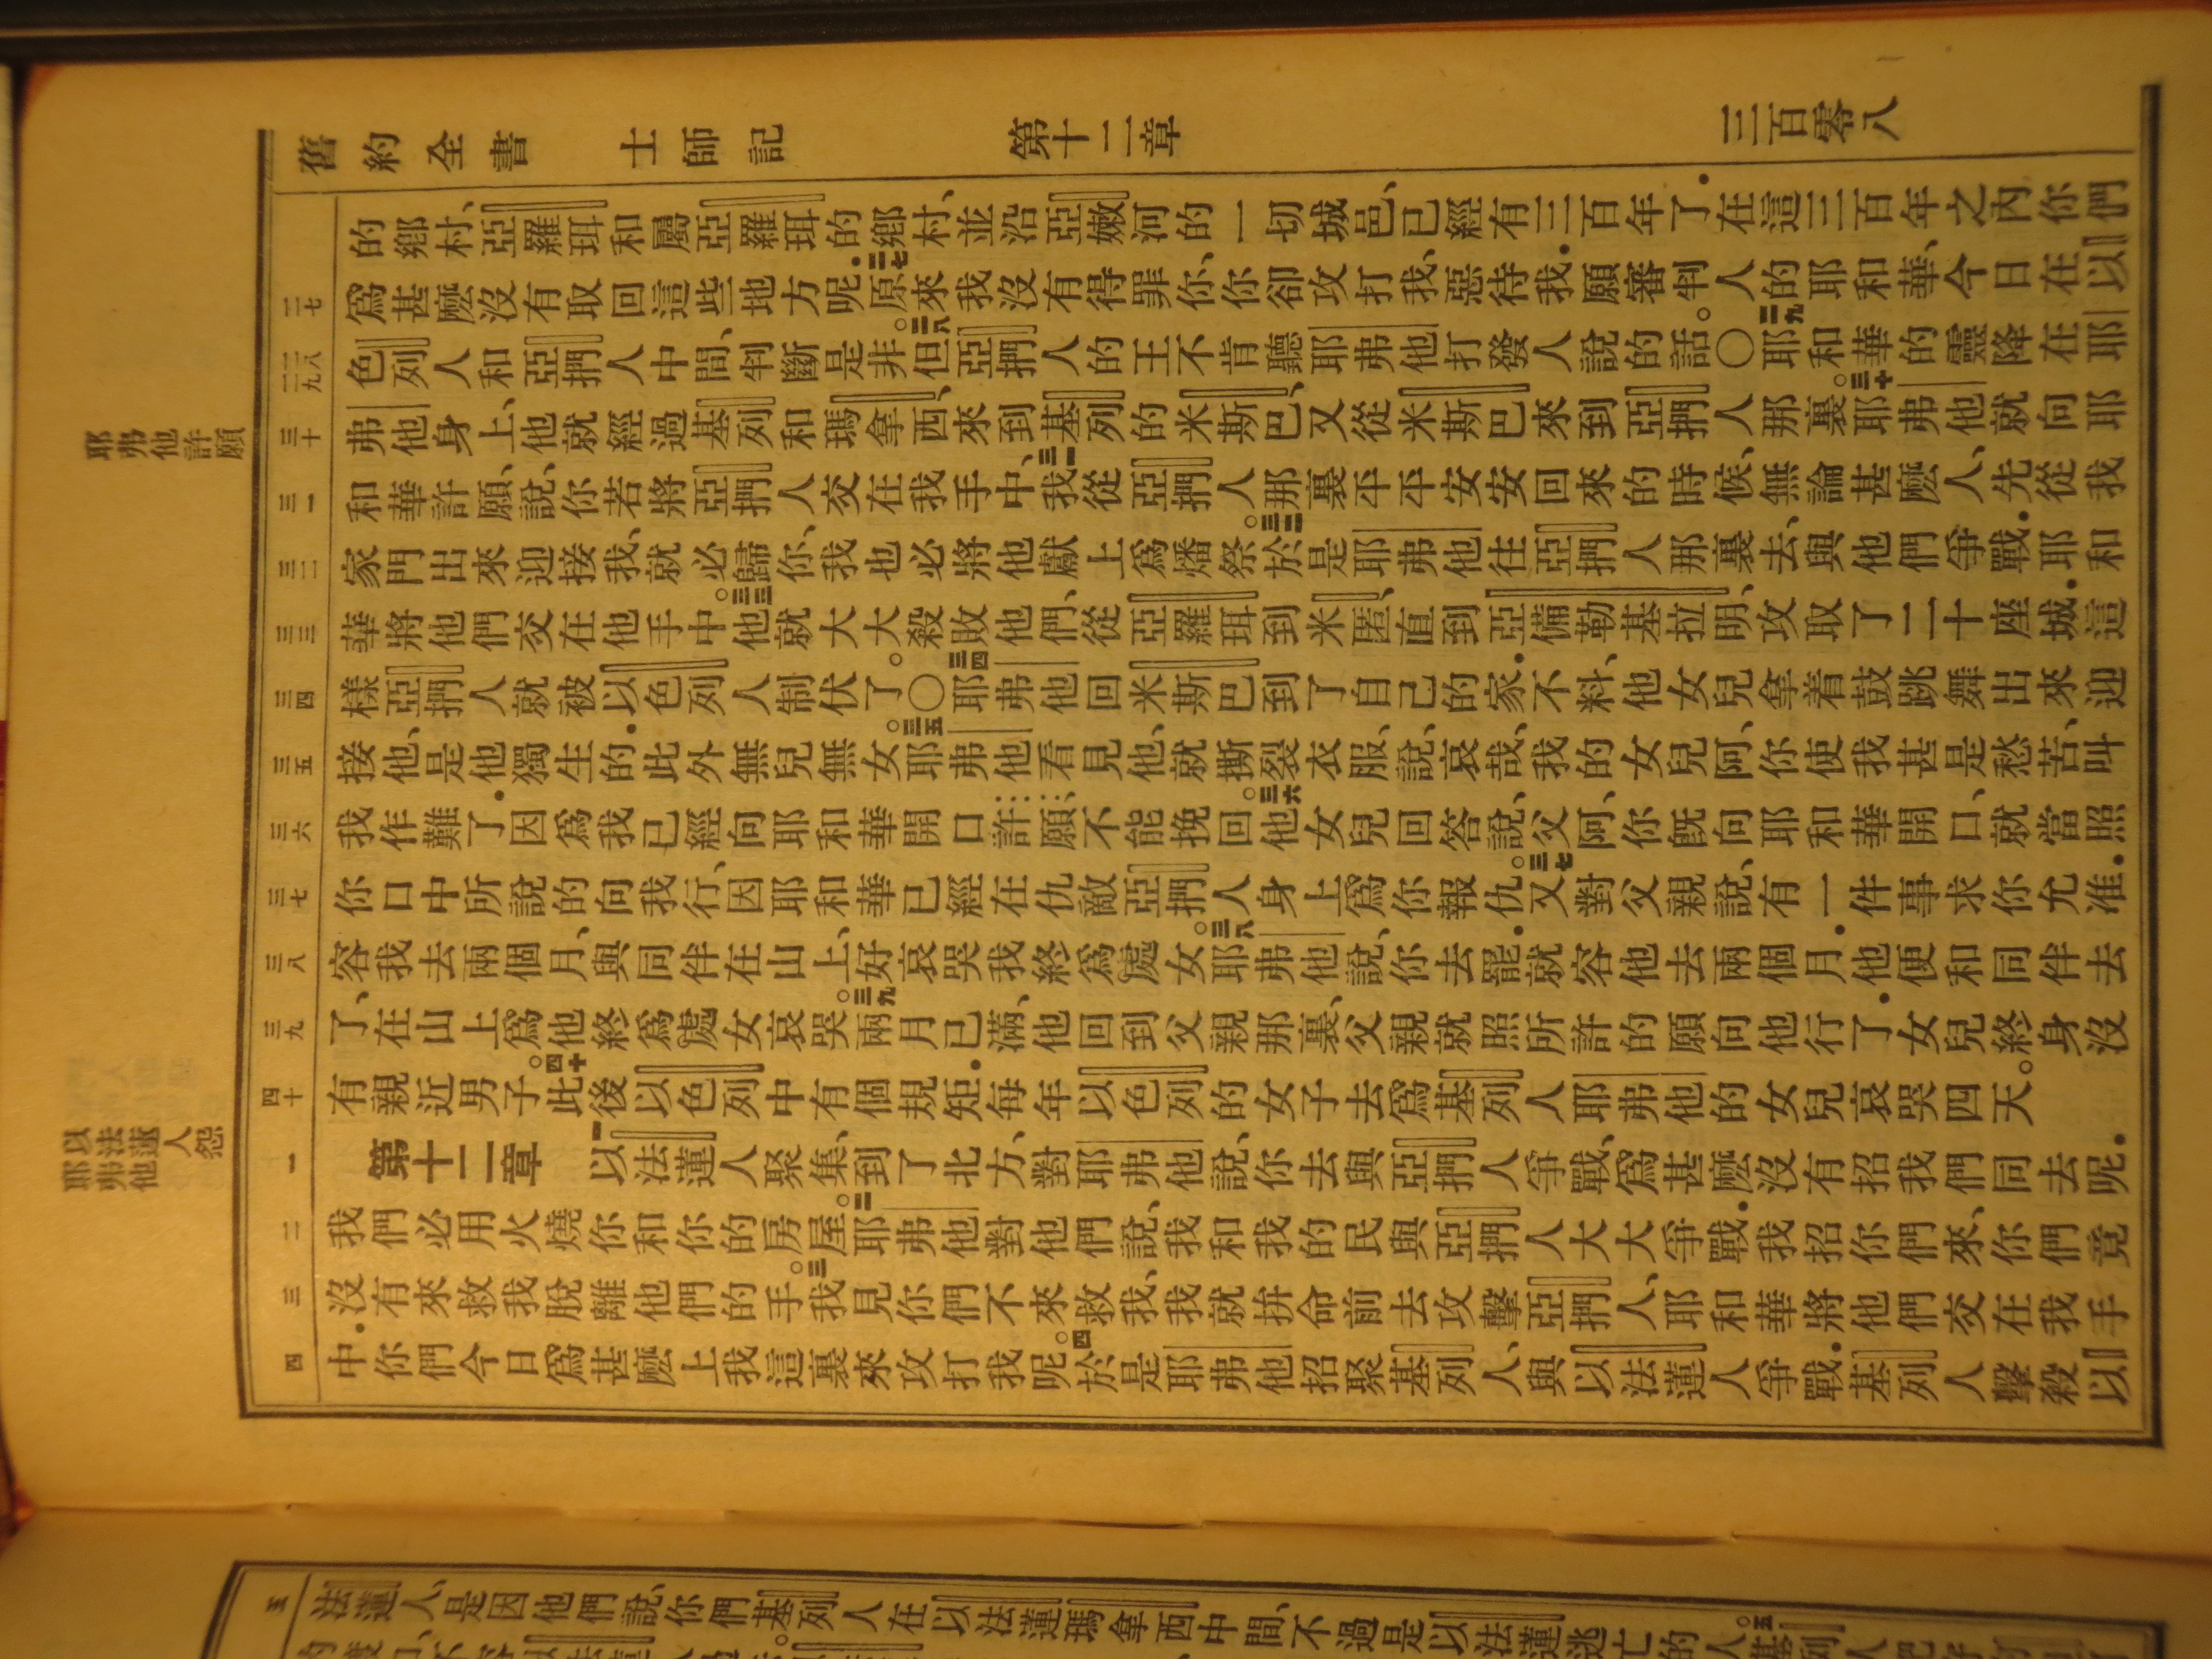 舊約全書 士師記 第十二章 三百零八
的鄉村、亞羅珥和屬亞羅珥的鄉村、並沿亞嫩河的一切城邑、已經有三百年了．在這三百年之內、你們
二七 爲甚麼沒有取回這些地方呢．二七原來我沒有得罪你、你卻攻打我、惡待我．願審判人的耶和華、今日在以
二八 二九 色列人和亞捫人中間、判斷是非。二八但亞捫人的王不肯聽耶弗他打發人說的話。〇二九耶和華的靈降在耶
三十 弗他身上、他就經過基列和瑪拿西、來到基列的米斯巴、又從米斯巴來到亞捫人那裏。三十耶弗他就向耶
三一 和華許願、說、你若將亞捫人交在我手中、三一我從亞捫人那裏平平安安回來的時候、無論甚麼人、先從我
三二 家門出來迎接我、就必歸你、我也必將他獻上爲燔祭。三二於是耶弗他往亞捫人那裏去、與他們爭戰．耶和
三三 華將他們交在他手中。三三他就大大殺敗他們、從亞羅珥到米匿、直到亞備勒基拉明、攻取了二十座城．這
三四 樣亞捫人就被以色列人制伏了。〇三四耶弗他回米斯巴到了自己的家．不料、他女兒拿着鼓跳舞出來迎
三五 接他、是他獨生的．此外無兒無女。三五耶弗他看見他、就撕裂衣服、說、哀哉、我的女兒阿、你使我甚是愁苦、叫
三六 我作難了．因爲我已經向耶和華開口許願、不能挽回。三六他女兒回答說、父阿、你旣向耶和華開口、就當照
三七 你口中所說的向我行、因耶和華已經在仇敵亞捫人身上爲你報仇。三七又對父親說、有一件事求你允准．
三八 容我去兩個月、與同伴在山上、好哀哭我終爲處女。三八耶弗他說、你去罷．就容他去兩個月．他便和同伴去
三九 了、在山上爲他終爲處女哀哭。三九兩月已滿、他回到父親那裏、父親就照所許的願向他行了．女兒終身沒
四十 有親近男子。四十此後以色列中有個規矩．每年以色列的女子去爲基列人耶弗他的女兒哀哭四天。
一 第十二章 一以法蓮人聚集、到了北方、對耶弗他說、你去與亞捫人爭戰、爲甚麼沒有招我們同去呢．
二 我們必用火燒你和你的房屋。二耶弗他對他們說、我和我的民與亞捫人大大爭戰．我招你們來、你們竟
三 沒有來救我脫離他們的手。三我見你們不來救我、我就拚命前去攻擊亞捫人、耶和華將他們交在我手
四 中．你們今日爲甚麼上我這裏來攻打我呢。四於是耶弗他招聚基列人、與以法蓮人爭戰．基列人擊殺以
耶弗他許願
以法蓮人怨
耶弗他
五 法蓮人、是因他們說、你們基列人在以法蓮瑪拿西中間、不過是以法蓮逃亡的人。五基列人把